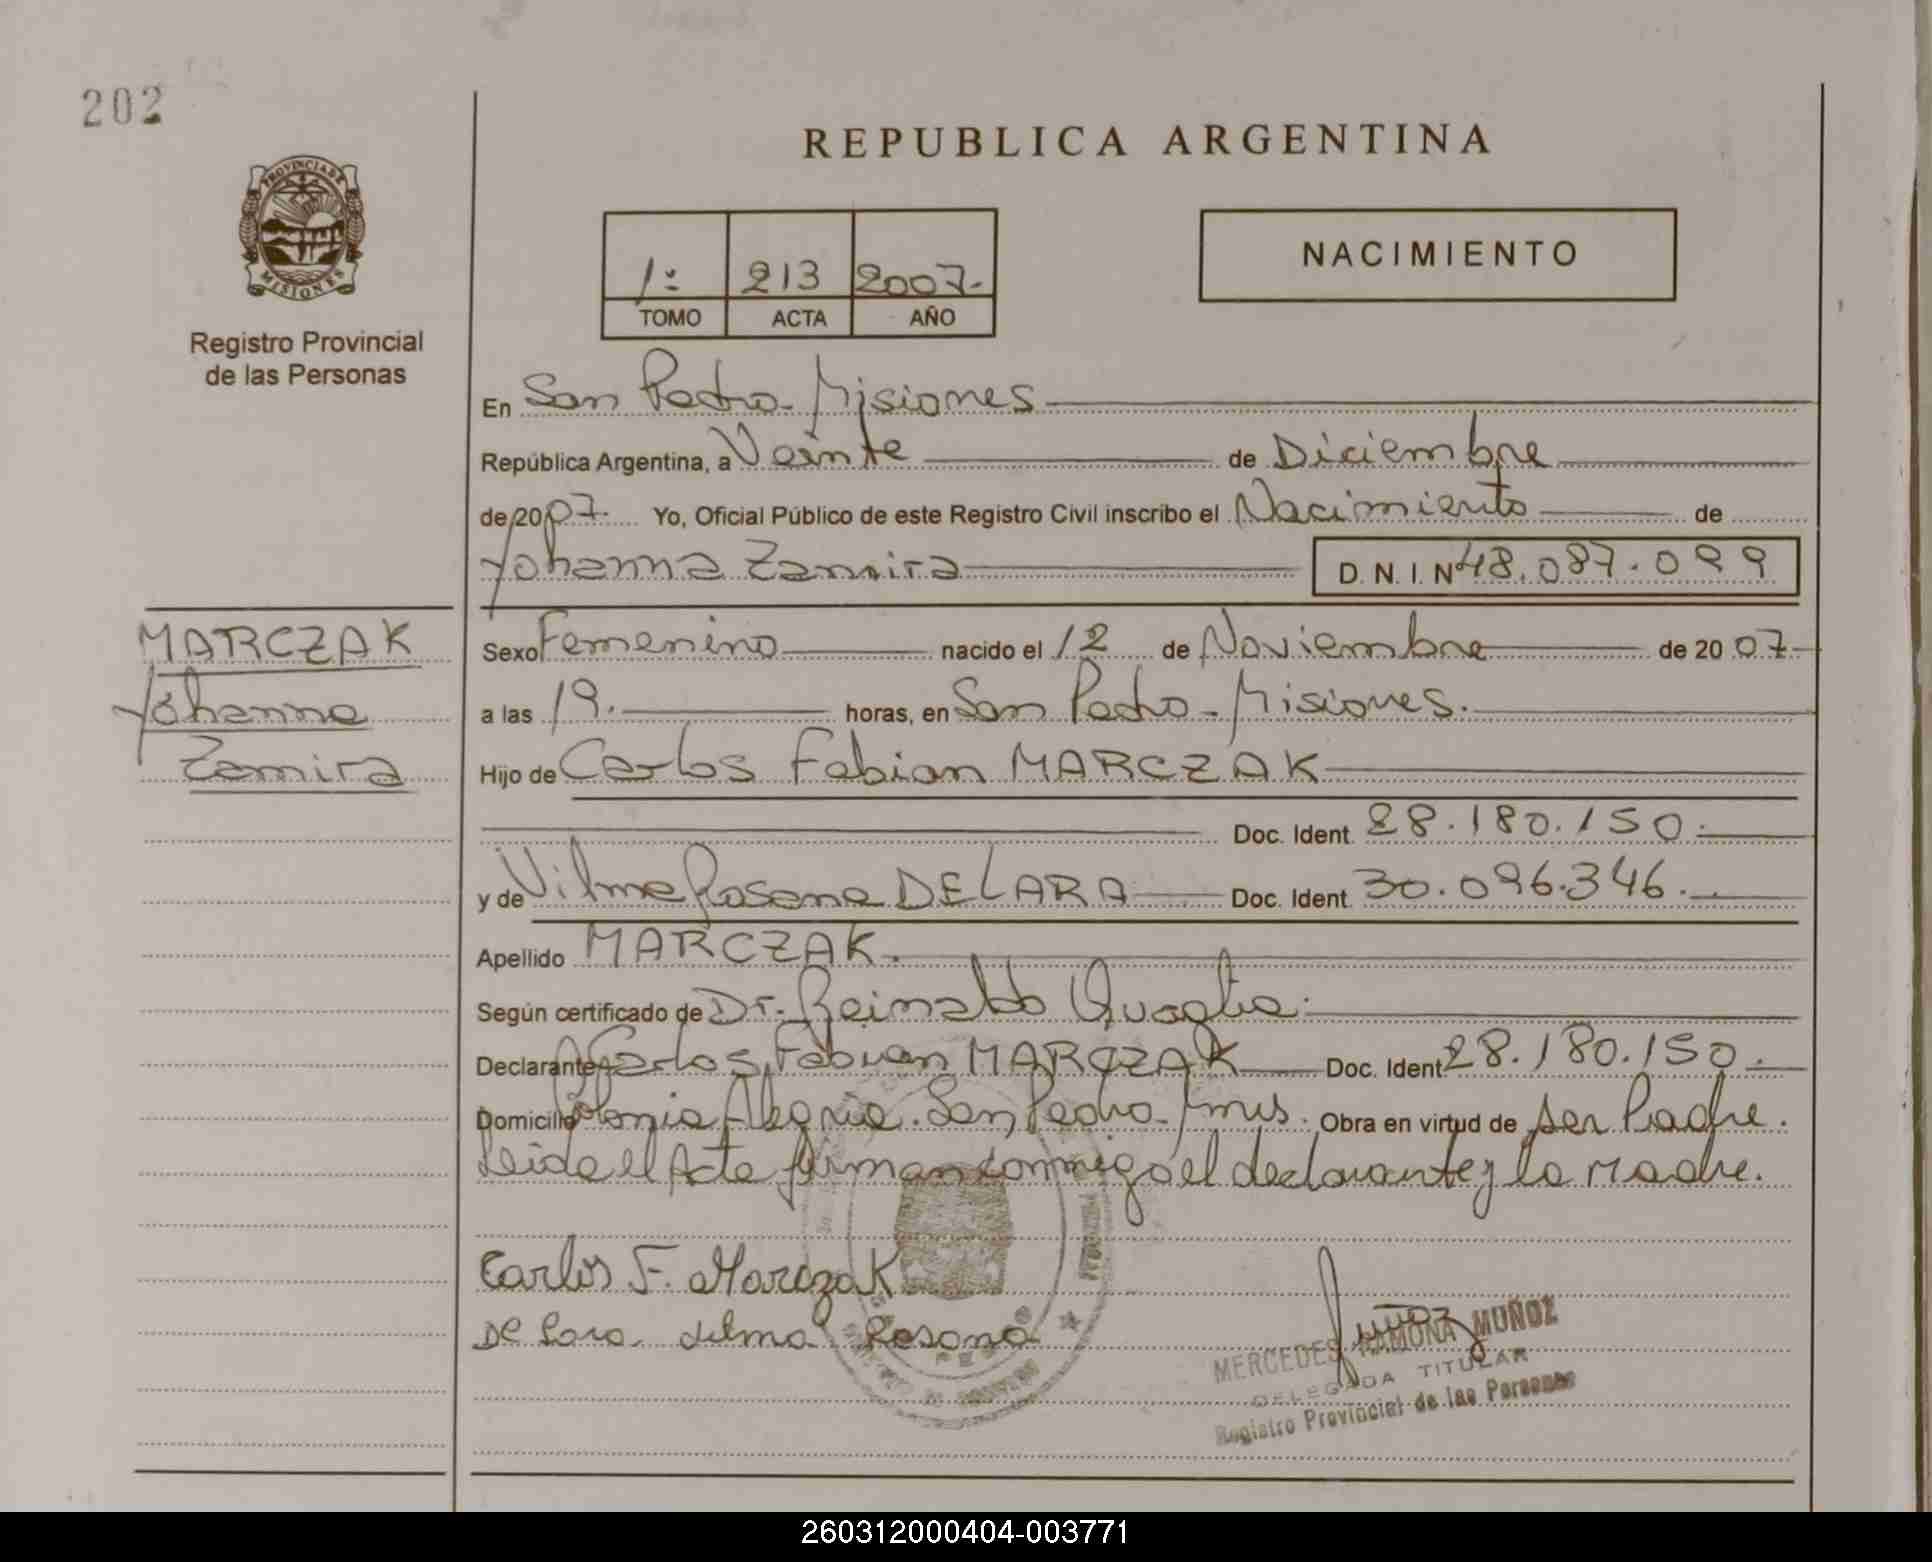 202
REPUBLICA ARGENTINA
PROVINCIA DE
MISIONES
Registro Provincial
de las Personas
NACIMIENTO
1: 213 2007.-
TOMO ACTA AÑO
En San Pedro - Misiones
República Argentina, a Veinte de Diciembre
de 2007. Yo, Oficial Público de este Registro Civil inscribo el Nacimiento de
Yohanna Zamira D. N. I. Nº 48.087.099
MARCZAK
Yohanna
Zamira
Sexo Femenino nacido el 12 de Noviembre de 2007
a las 19. horas, en San Pedro - Misiones.
Hijo de Carlos Fabian MARCZAK
Doc. Ident. 28.180.150.
y de Vilma Rosana DE LARA Doc. Ident. 30.096.346.
Apellido MARCZAK.
Según certificado de Dr. Reinaldo Quaglia.
Declarante Carlos Fabian MARCZAK Doc. Ident. 28.180.150.
Domicilio Colonia Alegria. San Pedro - Mnes. Obra en virtud de ser Padre.
Leida el Acta firman conmigo el declarante y la Madre.
Carlos F. Marczak
De Lara Vilma Rosana
Muñoz
MERCEDES RAMONA MUÑOZ
DELEGADA TITULAR
Registro Provincial de las Personas
260312000404-003771